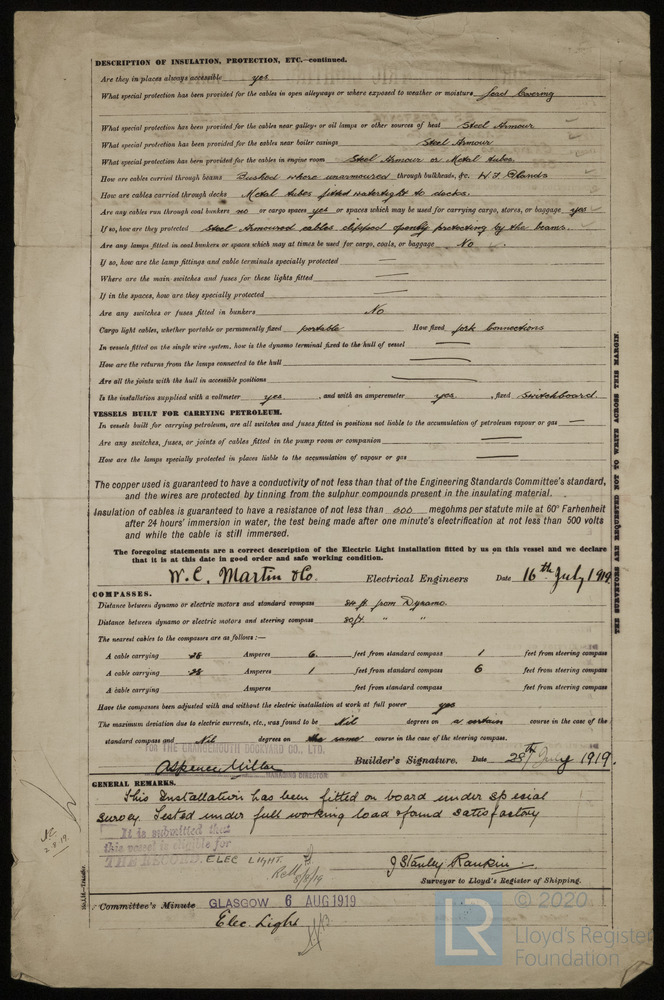 DESCRIPTION OF INSULATION, PROTECTION, ETC.—continued.
Are they in places always accessible yes
What special protection has been provided for the cables in open alleyways or where exposed to weather or moisture Lead Covering
What special protection has been provided for the cables near galleys or oil lamps or other sources of heat Steel Armour
What special protection has been provided for the cables near boiler casings Steel Armour
What special protection has been provided for the cables in engine room Steel Armour or Metal tubes.
How are cables carried through beams Bushed where unarmoured through bulkheads, &c. W.T. Glands
How are cables carried through decks Metal tubes fitted watertight to decks.
Are any cables run through coal bunkers no or cargo spaces yes or spaces which may be used for carrying cargo, stores, or baggage yes
If so, how are they protected Steel Armoured cables clipped openly protecting by the beams.
Are any lamps fitted in coal bunkers or spaces which may at times be used for cargo, coals, or baggage No
If so, how are the lamp fittings and cable terminals specially protected
Where are the main switches and fuses for these lights fitted
If in the spaces, how are they specially protected
Are any switches or fuses fitted in bunkers No
Cargo light cables, whether portable or permanently fixed portable How fixed fork connections
In vessels fitted on the single wire system, how is the dynamo terminal fixed to the hull of vessel
How are the returns from the lamps connected to the hull
Are all the joints with the hull in accessible positions
Is the installation supplied with a voltmeter yes , and with an amperemeter yes , fixed Switchboard
VESSELS BUILT FOR CARRYING PETROLEUM.
In vessels built for carrying petroleum, are all switches and fuses fitted in positions not liable to the accumulation of petroleum vapour or gas —
Are any switches, fuses, or joints of cables fitted in the pump room or companion
How are the lamps specially protected in places liable to the accumulation of vapour or gas
The copper used is guaranteed to have a conductivity of not less than that of the Engineering Standards Committee's standard,
and the wires are protected by tinning from the sulphur compounds present in the insulating material.
Insulation of cables is guaranteed to have a resistance of not less than 600 megohms per statute mile at 60° Farhenheit
after 24 hours' immersion in water, the test being made after one minute's electrification at not less than 500 volts
and while the cable is still immersed.
The foregoing statements are a correct description of the Electric Light installation fitted by us on this vessel and we declare
that it is at this date in good order and safe working condition.
W.C. Martin & Co. Electrical Engineers Date 16th July 1919
COMPASSES.
Distance between dynamo or electric motors and standard compass 84 ft. from Dynamo.
Distance between dynamo or electric motors and steering compass 80 ft. " "
The nearest cables to the compasses are as follows:—
A cable carrying .28 Amperes 6. feet from standard compass 1 feet from steering compass
A cable carrying .28 Amperes 1 feet from standard compass 6 feet from steering compass
A cable carrying Amperes feet from standard compass feet from steering compass
Have the compasses been adjusted with and without the electric installation at work at full power yes
The maximum deviation due to electric currents, etc., was found to be Nil degrees on a certain course in the case of the
standard compass and Nil degrees on the same course in the case of the steering compass.
FOR THE GRANGEMOUTH DOCKYARD CO., LTD.
A Spence Miller Builder's Signature. Date 28th July 1919.
MANAGING DIRECTOR
GENERAL REMARKS.
This Installation has been fitted on board under special
survey. Tested under full working load & found satisfactory
It is submitted that
this vessel is eligible for
THE RECORD. ELEC LIGHT.
8/8/19
J Stanley Rankin
Surveyor to Lloyd's Register of Shipping.
Committee's Minute GLASGOW 6 AUG 1919
Elec. Light
THE SURVEYORS ARE REQUESTED NOT TO WRITE ACROSS THIS MARGIN.
2.8.19
LR
© 2020
Lloyd's Register
Foundation